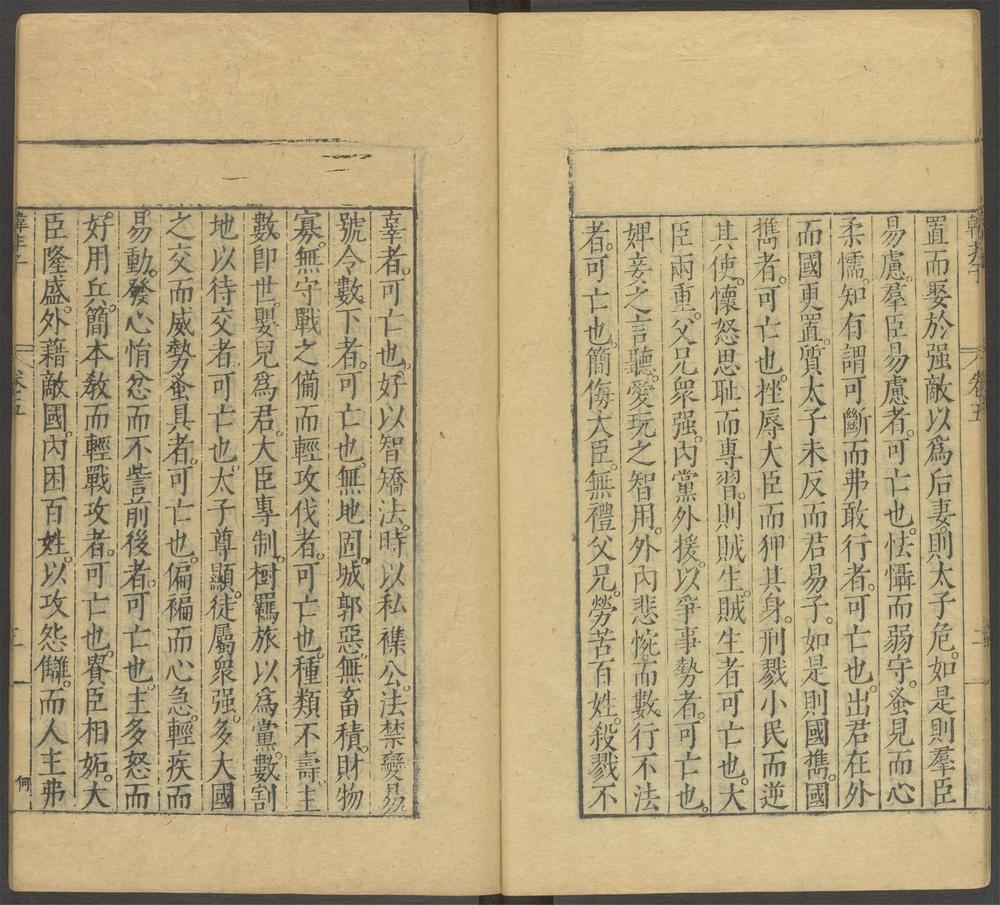 韓非子 卷五 二
置而娶於强敵以爲后妻。則太子危。如是則羣臣
易慮。羣臣易慮者。可亡也。怯懾而弱守。蚤見而心
柔懦。知有謂可斷而弗敢行者。可亡也。出君在外
而國更置。質太子未反而君易子。如是則國㩦。國
㩦者。可亡也。挫辱大臣而狎其身。刑戮小民而逆
其使。懷怒思耻而專習。則賊生。賊生者可亡也。大
臣兩重。父兄衆强。内黨外援。以爭事勢者。可亡也。
婢妾之言聽。愛玩之智用。外内悲惋而數行不法
者。可亡也。簡傷大臣。無禮父兄。勞苦百姓。殺戮不
辜者。可亡也。好以智矯法。時以私襍公。法禁變易。
號令數下者。可亡也。無地固。城郭惡。無畜積。財物
寡。無守戰之備而輕攻伐者。可亡也。種類不壽。主
數卽世。嬰兒爲君。大臣專制。樹羈旅以爲黨。數割
地以待交者。可亡也。太子尊顯。徒屬衆强。多大國
之交而威勢蚤具者。可亡也。偏褊而心急。輕疾而
易動。發心悁忿而不訾前後者。可亡也。主多怒而
好用兵。簡本敎而輕戰攻者。可亡也。貴臣相妬。大
臣隆盛。外藉敵國。内困百姓。以攻怨讎。而人主弗
韓非子 卷五 三 何